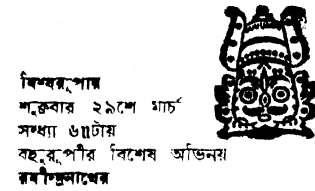 বিশ্বরূপায়
শুক্রবার ২৯শে মার্চ
সন্ধ্যা ৬॥টায়
বহুরূপীর বিশেষ অভিনয়
রবীন্দ্রনাথের